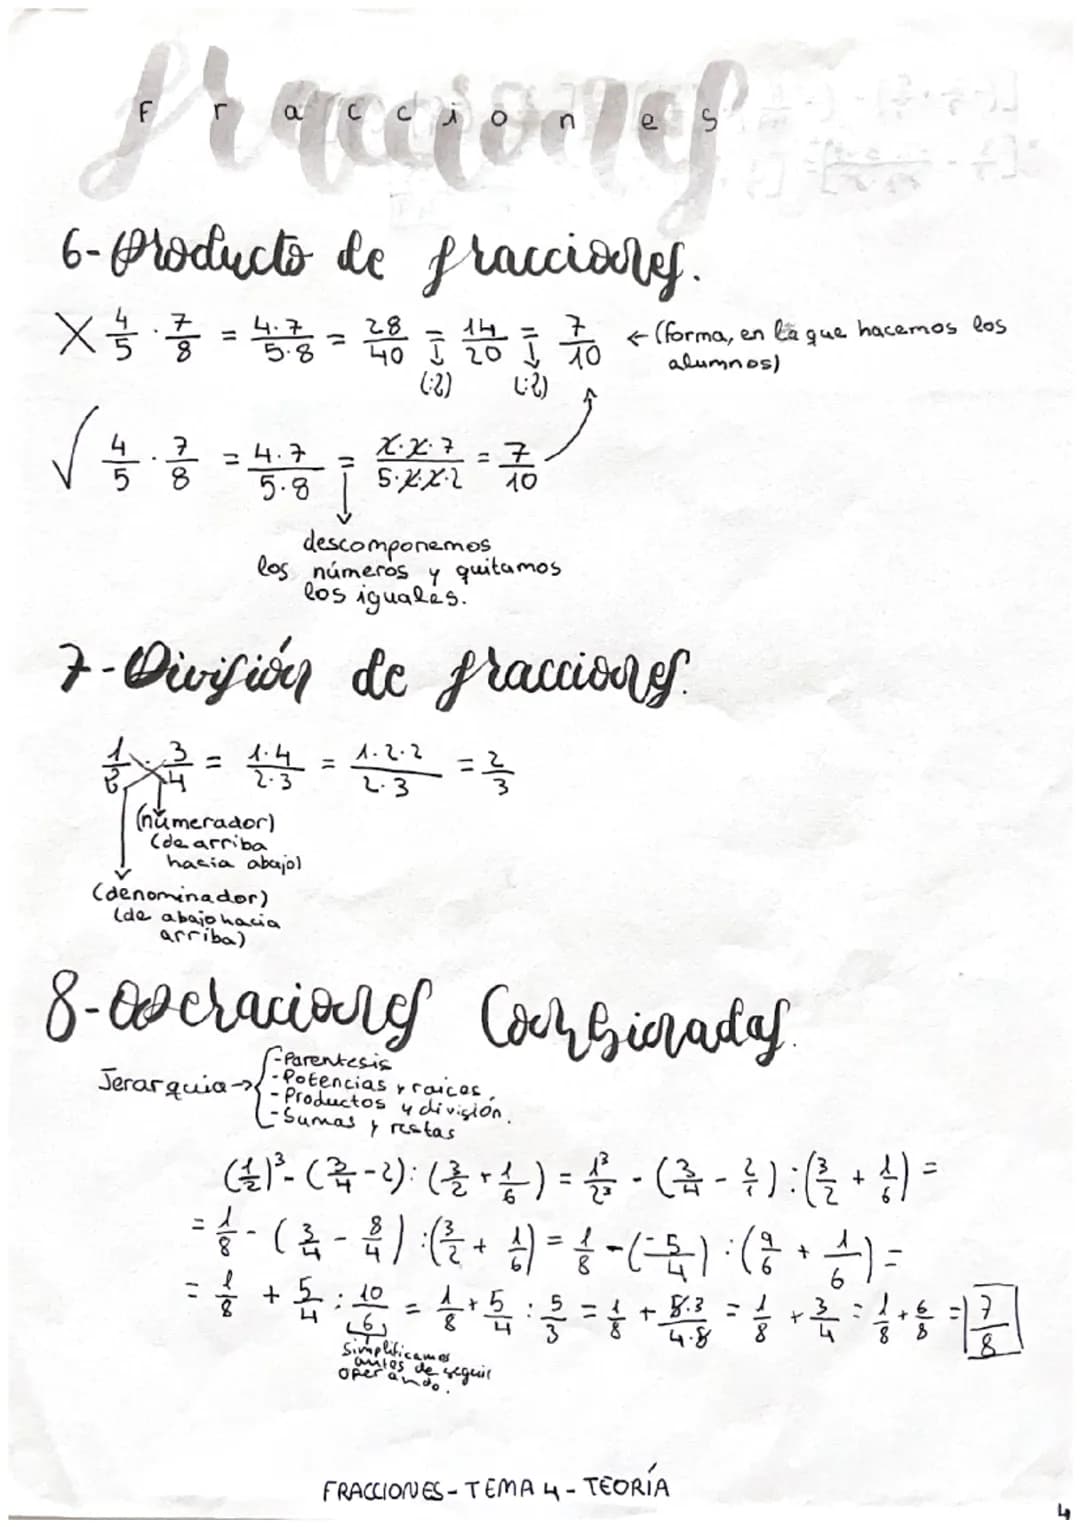 Fracciones
6-Producto de fracciones.
X 4/5 · 7/8 = 4·7/5·8 = 28/40 = 14/20 = 7/10 ← (forma, en la que hacemos los
alumnos)
(:2) (:2)
√ 4/5 · 7/8 = 4·7/5·8 = 2·2·7/5·2·2·2 = 7/10
descomponemos
los números y quitamos
los iguales.
7-División de fracciones.
1/2 : 3/4 = 1·4/2·3 = 1·2·2/2·3 = 2/3
(numerador)
(de arriba
hacia abajo)
(denominador)
(de abajo hacia
arriba)
8-Operaciones Combinadas.
Jerarquia → { -Parentesis
-Potencias y raices.
-Productos y división.
-Sumas y restas
(1/2)³ - (3/4 - 2) : (3/2 + 1/6) = 1³/2³ - (3/4 - 2/1) : (3/2 + 1/6) =
= 1/8 - (3/4 - 8/4) : (3/2 + 1/6) = 1/8 - (-5/4) : (9/6 + 1/6) =
= 1/8 + 5/4 : 10/6 = 1/8 + 5/4 : 5/3 = 1/8 + 5·3/4·5 = 1/8 + 3/4 = 1/8 + 6/8 = 7/8
Simplificamos
antes de seguir
operando.
FRACCIONES - TEMA 4 - TEORÍA
4